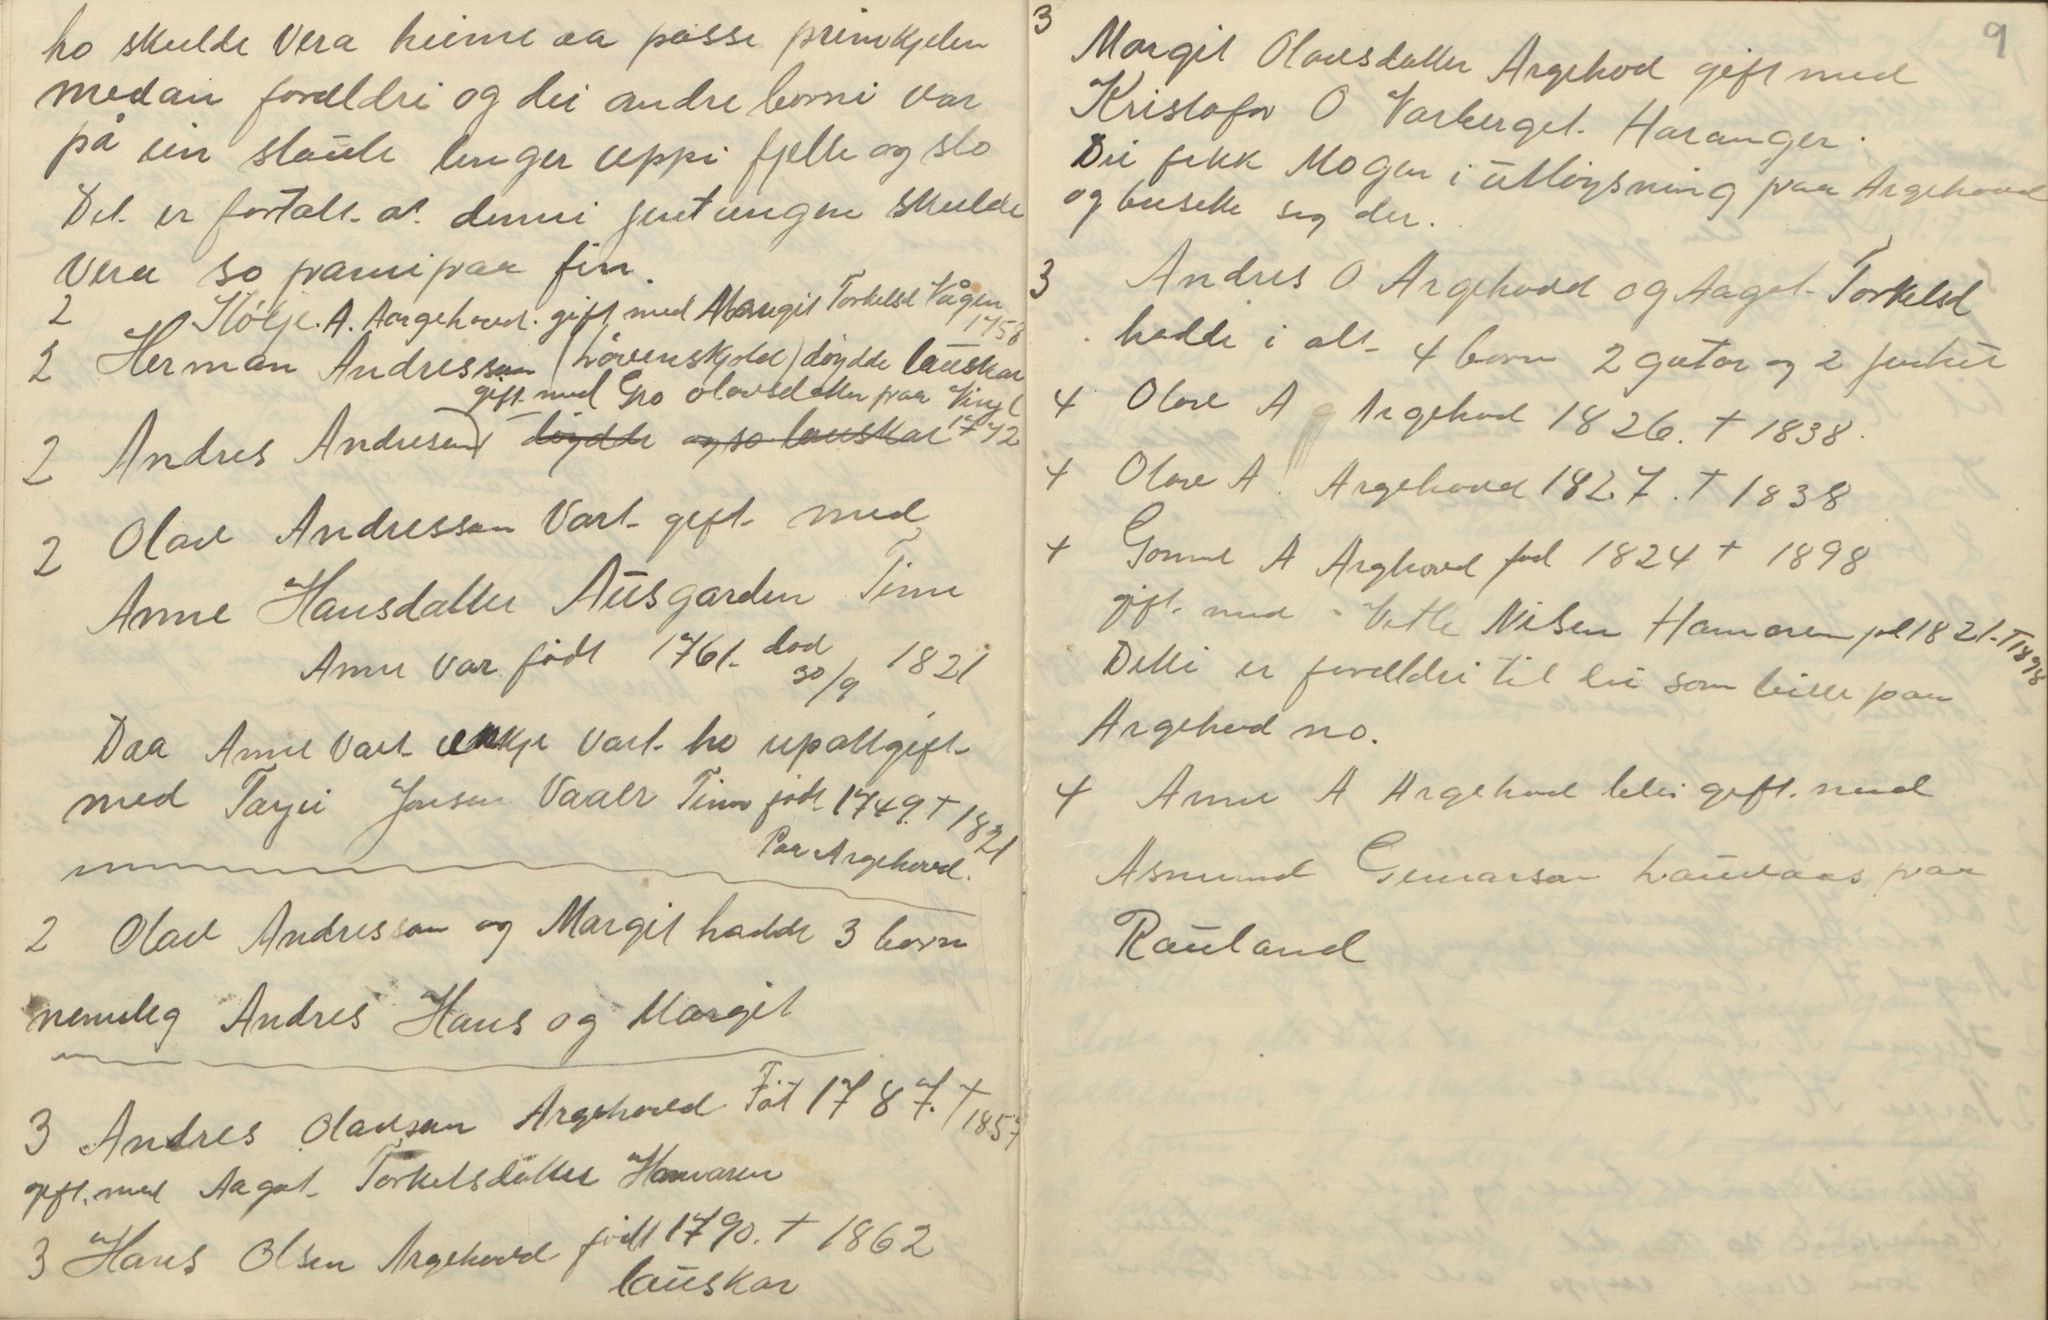 ho skulde vera heime aa passe primkjelen
medan foreldri og dei andre borni var
på ein støule lenger uppi fjelle og slo
Det er fortalt at denni jentungen skulde
vera so pramipaa fin.
2 Hølje. A. Aargehovd. gift med Margit Torkelsd Vågen
1758
2 Herman Andresson (Løvenskjold) døydde lauskar
gift med Gro olavsdatter paa
2 Andres Andresen døydde og so lauskar 1742
2 Olav Andresson Vart gift med
Anne Hansdatter Ausgarden Tinn
Anne var født 1761 dod 30/9 1821
Daa Anne vart enkje vart ho upattgift
med Tarjei Jonsen Vaaer Tinn født 1749. † 1821
Paa Argehovd.
2 Olav Andresson og Margit hadde 3 born
nemeleg Andres Hans og Margit
3 Andres Olavson Argehovd Føt 1787. † 1857
gift. med Aagot Torkelsdatter Hamaren
3 Hans Olsen Argehovd født 1790. † 1862
lauskar
9
3 Margit Olavsdatter Argehovd gift med
Kristofer O Varberget Haranger.
Dei fekk Mogen i utløysning paa Argehovd
og busette seg der.
3 Andres O Argehovd og Aagot Torkelsd
hadde i alt 4 born 2 gutar og 2 jentur
4 Olav A Argehovd 1826. † 1838.
4 Olav A. Argehovd 1827. † 1838
4 Gonnil A Arghovd fød 1824 † 1898
gift. med Vetle Nilsen Hamaren fød 1821. † 1898
Detti er foreldri til dei som bille paa
Argehovd no.
4 Anne A Argehovd blei gift. med
Asmund Gunnarson Lauvaas paa
Rauland